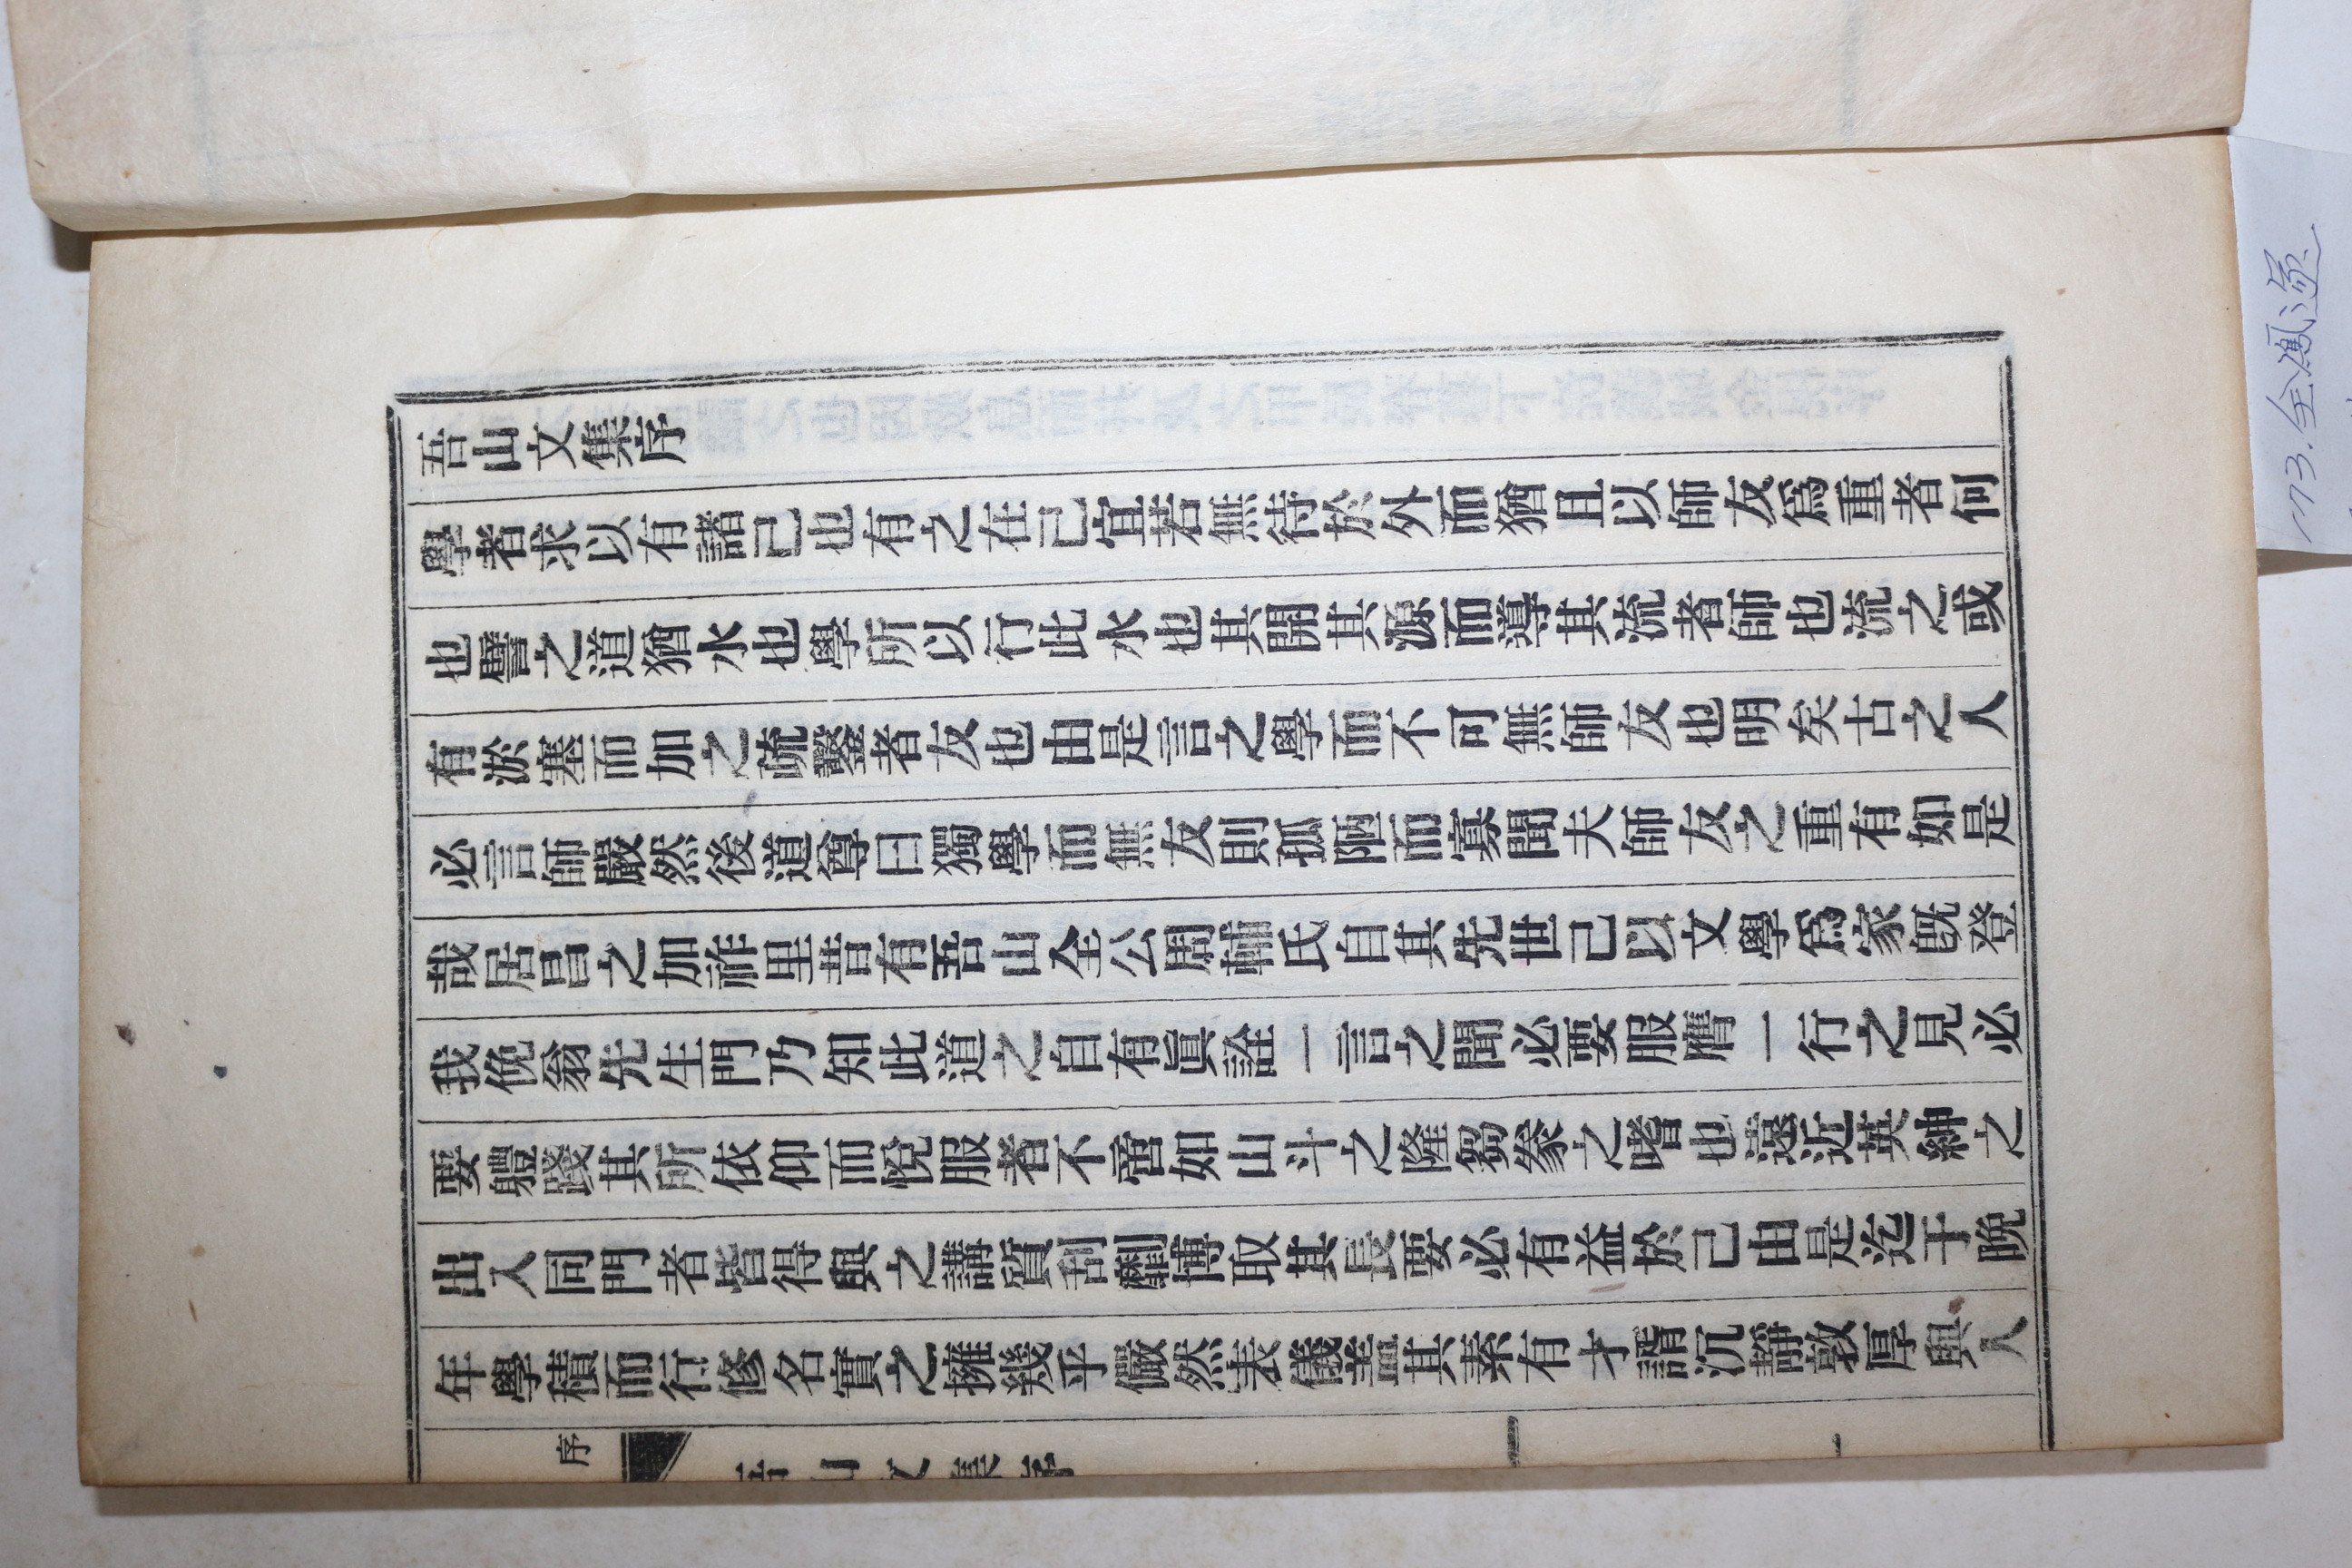 吾山文集序
學者求以有諸己也有之在己宜若無待於外而猶且以師友爲重者何
也譬之道猶水也學所以行此水也其開其源而導其流者師也流之或
有淤塞而加之疏鑿者友也由是言之學而不可無師友也明矣古之人
必言師嚴然後道尊曰獨學而無友則孤陋而寡聞夫師友之重有如是
哉居昌之加祚里昔有吾山全公周輔氏自其先世己以文學爲家旣登
我俛翁先生門乃知此道之自有眞詮一言之聞必要服膺一行之見必
要軆踐其所依仰而悅服者不啻如山斗之隆芻豢之嗜也遠近英紳之
出入同門者皆得與之講質刮劘博取其長要必有益於己由是迄于晩
年學積而行修名實之擁幾乎儼然表儀盖其素有才諝沉靜敦厚與人
序
吾山文集序
一
173.全鳳遂